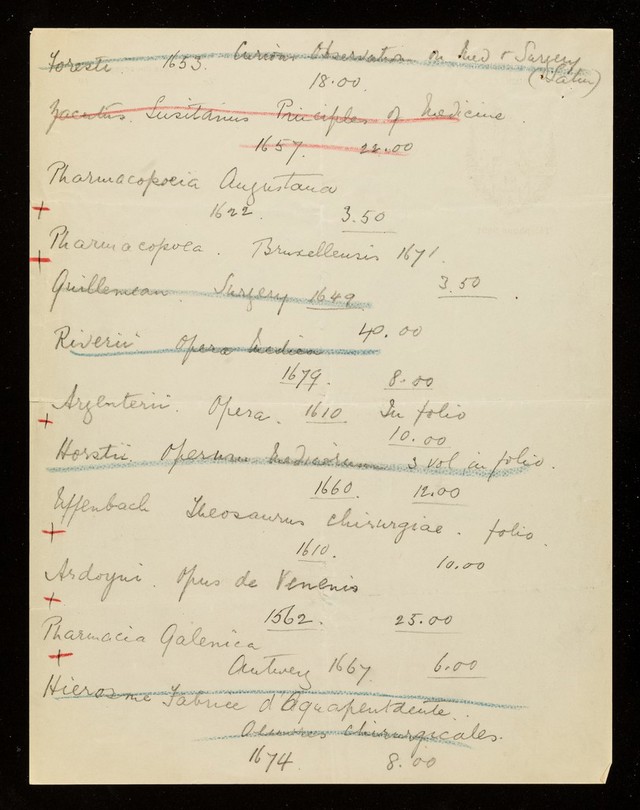 Foresti. 1653. Curious Observation on Med & Surgery
(Latin)
18.00
Zacutus Lusitanus Principles of Medicine.
1657. 22.00
Pharmacopoeia Augustana
1622. 3.50
Pharmacopoea. Bruxellensis 1671.
3.50
Guillemeau. Surgery 1649
40.00
Riverii Opera Medica
1679. 8.00
Argenterii. Opera. 1610 In folio
10.00
Horstii. Operum Medicorum 3 vol in folio.
1660. 12.00
Uffenbach Theosaurus chirurgiae. folio.
1610. 10.00
Ardoyni. Opus de Venenis
1562. 25.00
Pharmacia Galenica
Antwerp 1667. 6.00
Hierosme Fabrice d'Aquapendente.
Oeuvres Chirurgicales.
1674 8.00